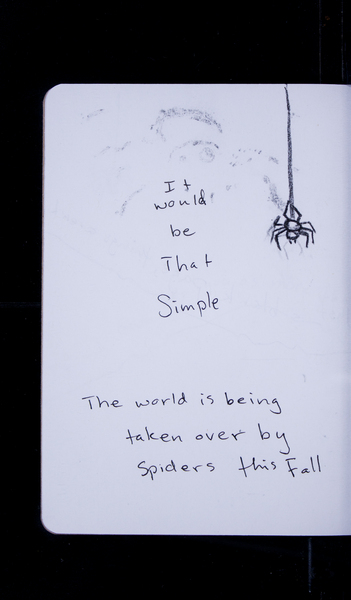 It
would
be
That
Simple
The world is being
taken over by
Spiders this Fall